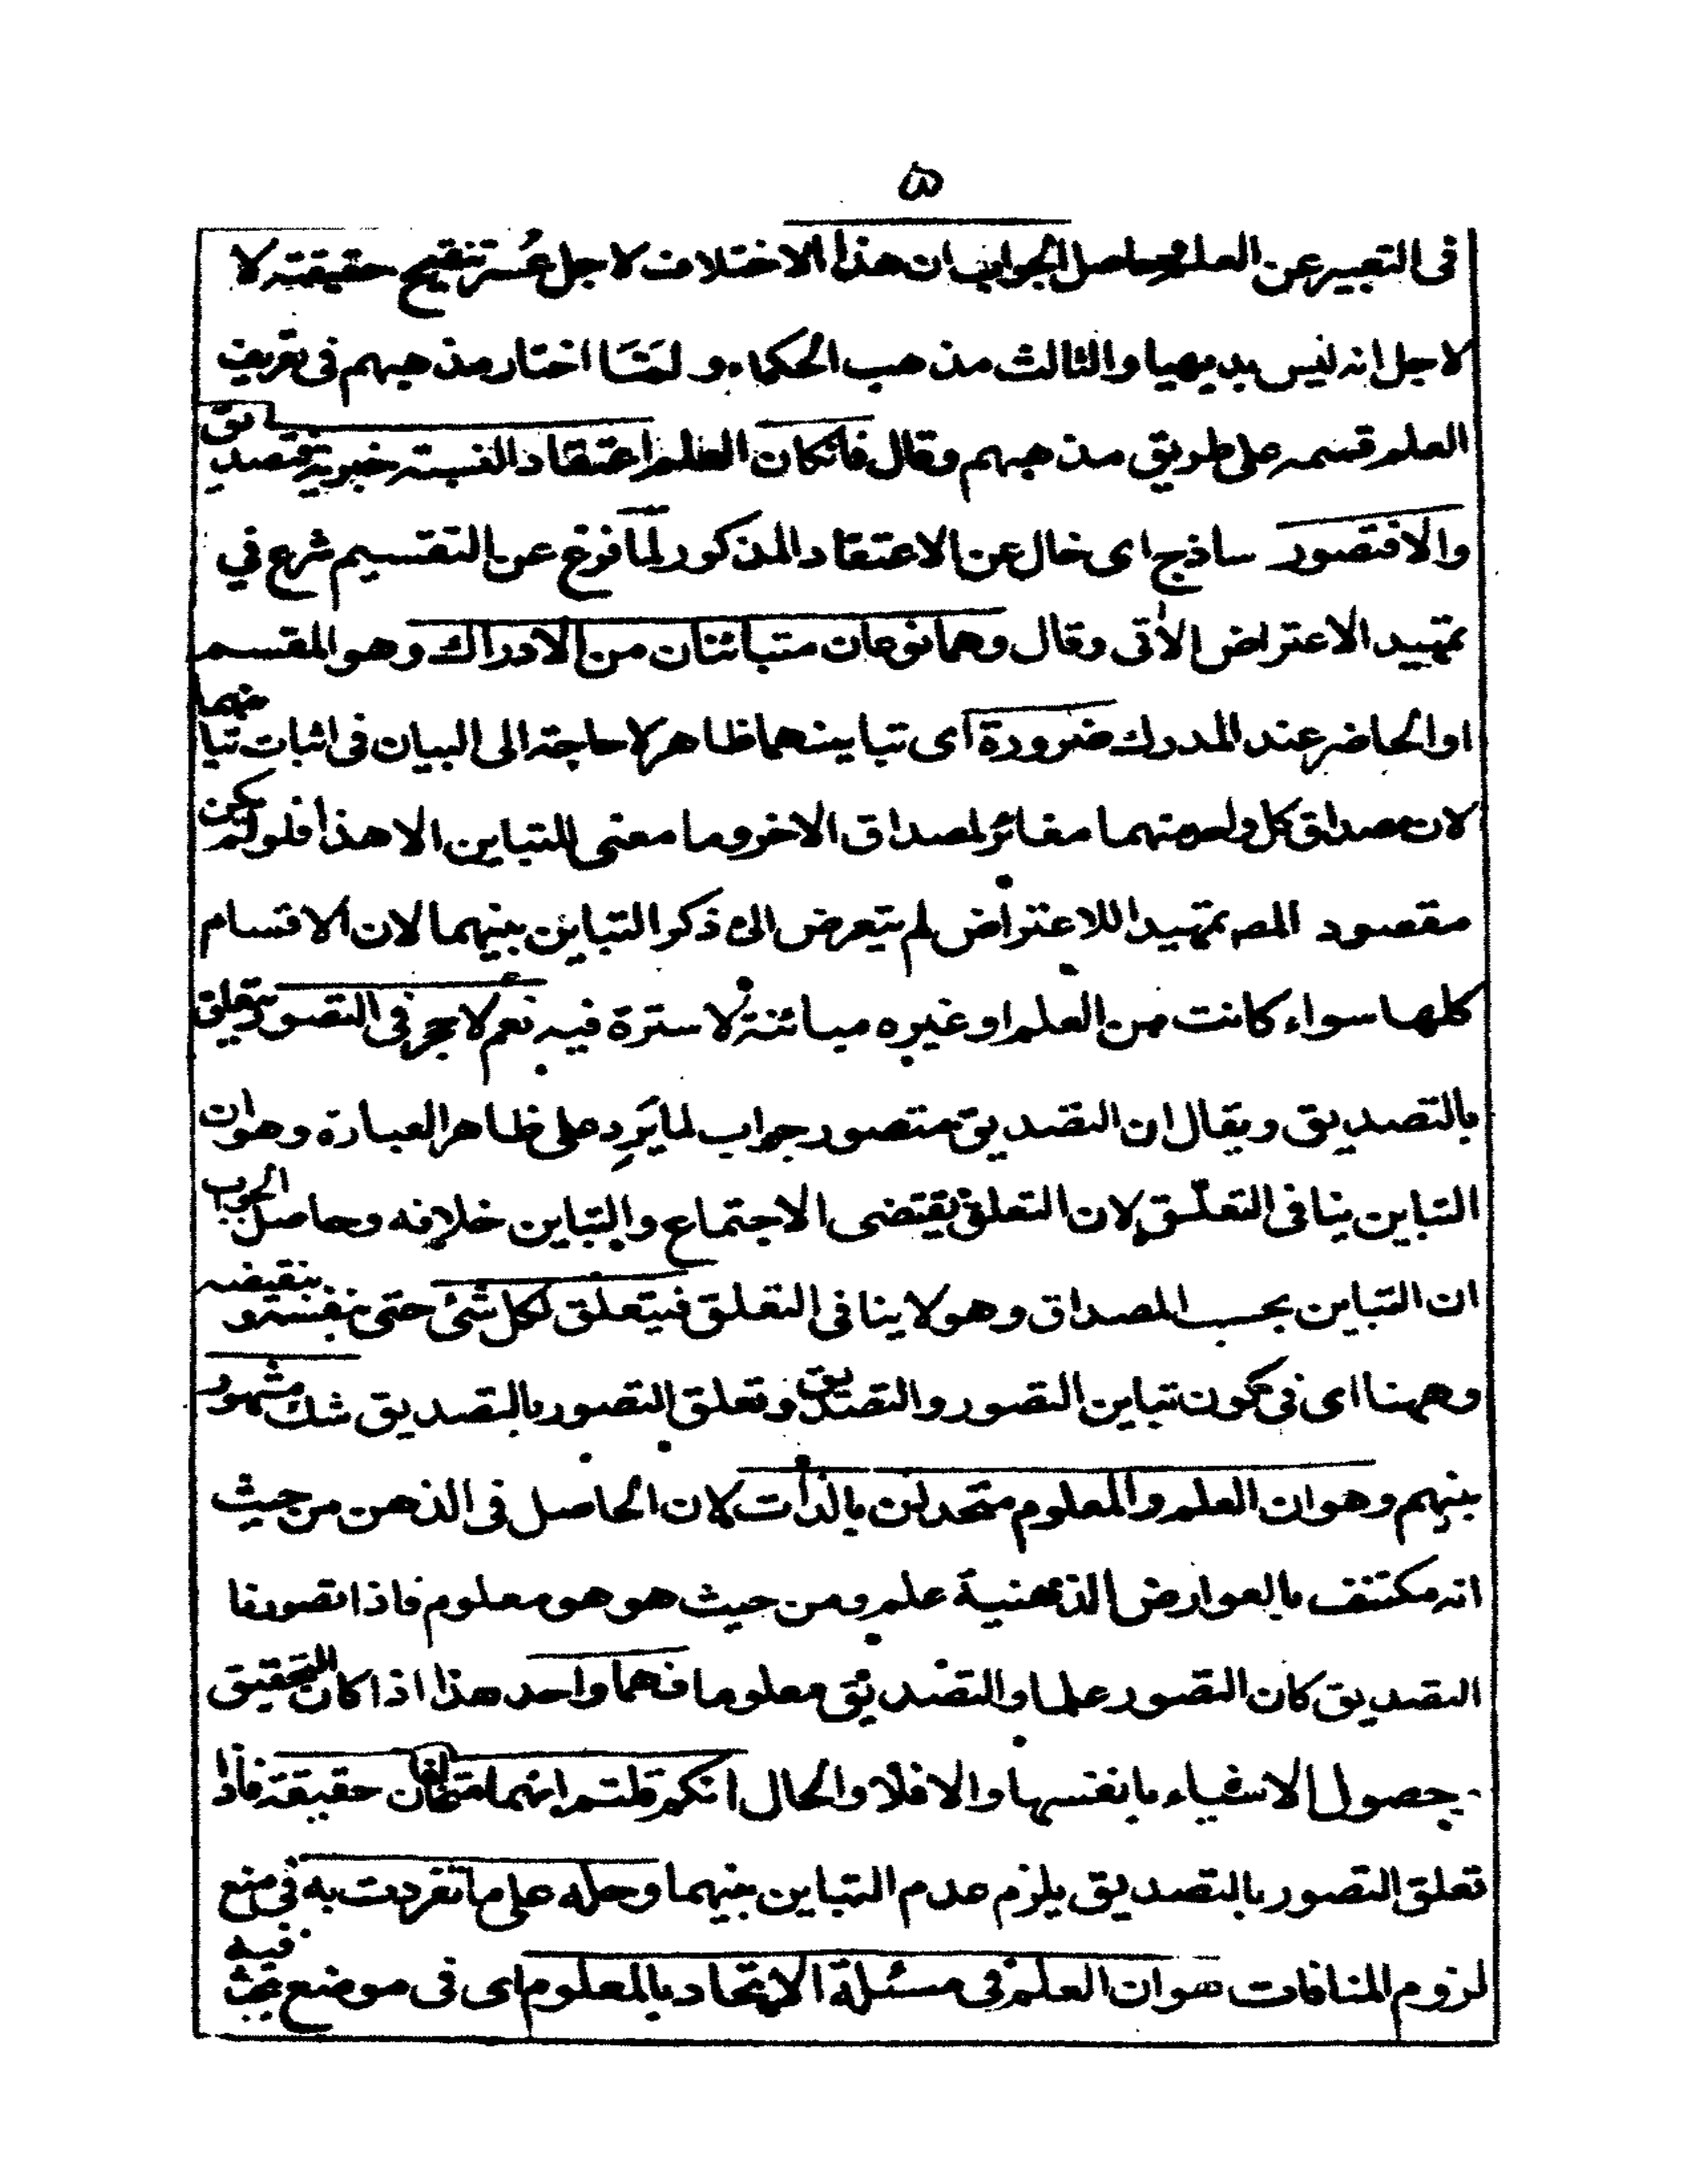 ۵
فى التعبير عن العلم وحاصل الجواب ان هذا الاختلاف لاجل عُسر تنقيح حقيقته لا
لاجل انه ليس بديهيا والثالث مذهب الحكماء و لمَّا اختار مذهبهم فى تعريف
العلم قسمه على طريق مذهبهم وقال فانكان العلم اعتقاد النسبته خبرية فتصديق
والا فتصور ساذج اى خال عن الاعتقاد المذكور لما فرغ عن التقسيم شرع في
تمهيد الاعتراض الأتى وقال وهما نوعان متبائنان من الادراك وهو المقسم
او الحاضر عند المدرك ضرورة اى تباينهما ظاهر لا حاجته الى البيان فى اثبات تباينهما
لان مصداق كل واحد منهما مغائر لمصداق الاخر وما معنى للتباين الا هذا فلو لم يكن
مقصود المصه تمهيدا للاعتراض لم يتعرض الى ذكر التباين بينهما لان الاقسام
كلها سواء كانت من العلم او غيره مبائنة لا سترة فيه نعم لا حجر فى التصور فيتعلق
بالتصديق ويقال ان التصديق متصور جواب لما يَرِد على ظاهر العبارة وهو ان
التباين ينافى التعلّق لان التعلق يقتضى الاجتماع والتباين خلافه وحاصل الجواب
ان التباين بحسب المصداق وهو لا ينافى التعلق فيتعلق لكل شئى حتى بنفسه و بنقيضه
وههنا اى فى كون تباين التصور والتصديق وتعلق التصور بالتصديق شك مشهور
بينهم وهو ان العلم والمعلوم متحدان بالذات لان الحاصل فى الذهن من حيث
انه مكتنف بالعوارض الذهنية علم ومن حيث هو هو معلوم فاذا تصورنا
التصديق كان التصور علما والتصديق معلوما فهما واحد هذا اذا كان التحقيق
حصول الاشياء بانفسها والا فلا والحال انكم قلتم انهما متخالفان حقيقة فاذا
تعلق التصور بالتصديق يلزم عدم التباين بينهما وحله على ما تفردت به فى منع
لزوم المنافات هو ان العلم فى مسئلة الاتحاد بالمعلوم اى فى موضع يبحث فيه